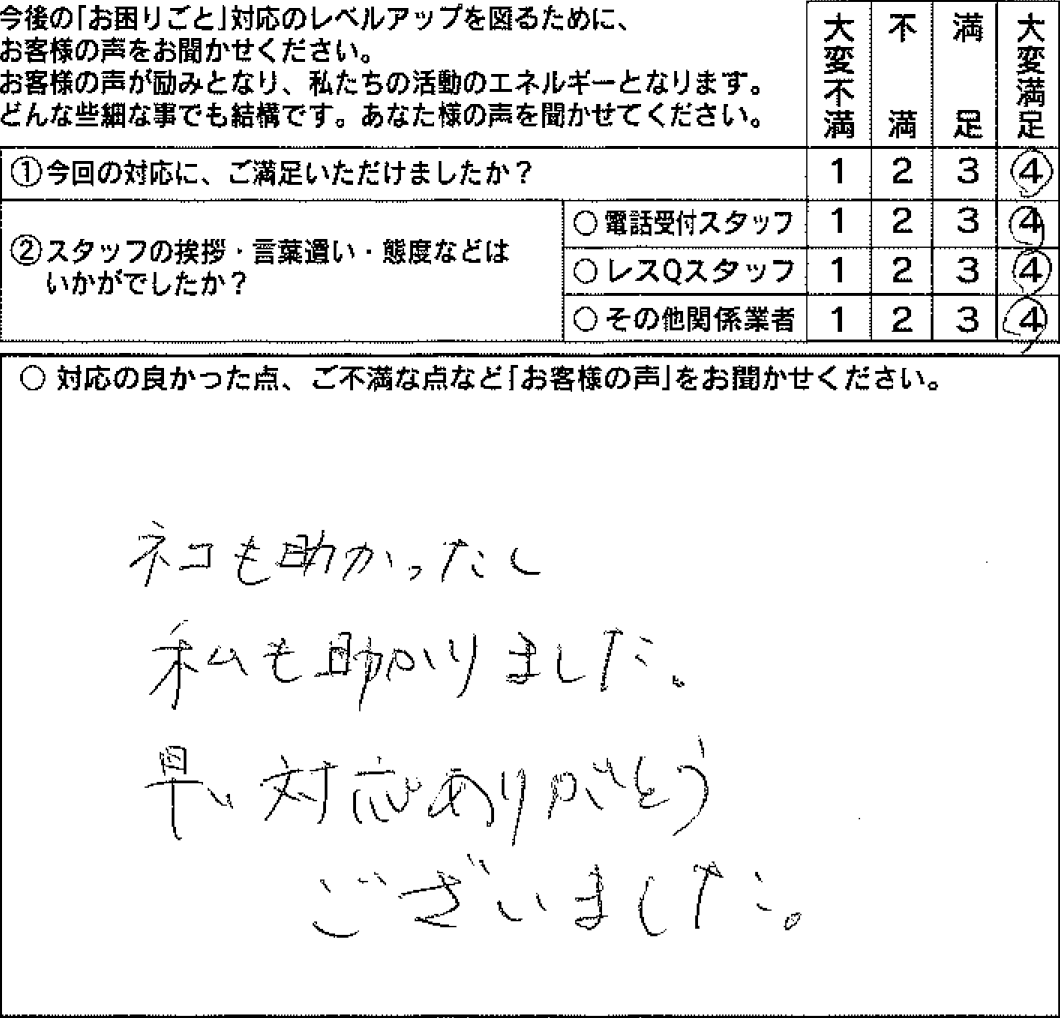 今後の「お困りごと」対応のレベルアップを図るために、
お客様の声をお聞かせください。
お客様の声が励みとなり、私たちの活動のエネルギーとなります。
どんな些細な事でも結構です。あなた様の声を聞かせてください。
大変不満 不満 満足 大変満足
①今回の対応に、ご満足いただけましたか？ 1 2 3 4
②スタッフの挨拶・言葉遣い・態度などは
いかがでしたか？
○電話受付スタッフ 1 2 3 4
○レスQスタッフ 1 2 3 4
○その他関係業者 1 2 3 4
○ 対応の良かった点、ご不満な点など「お客様の声」をお聞かせください。
ネコも助かったし
私も助かりました。
早い対応ありがとう
ございました。